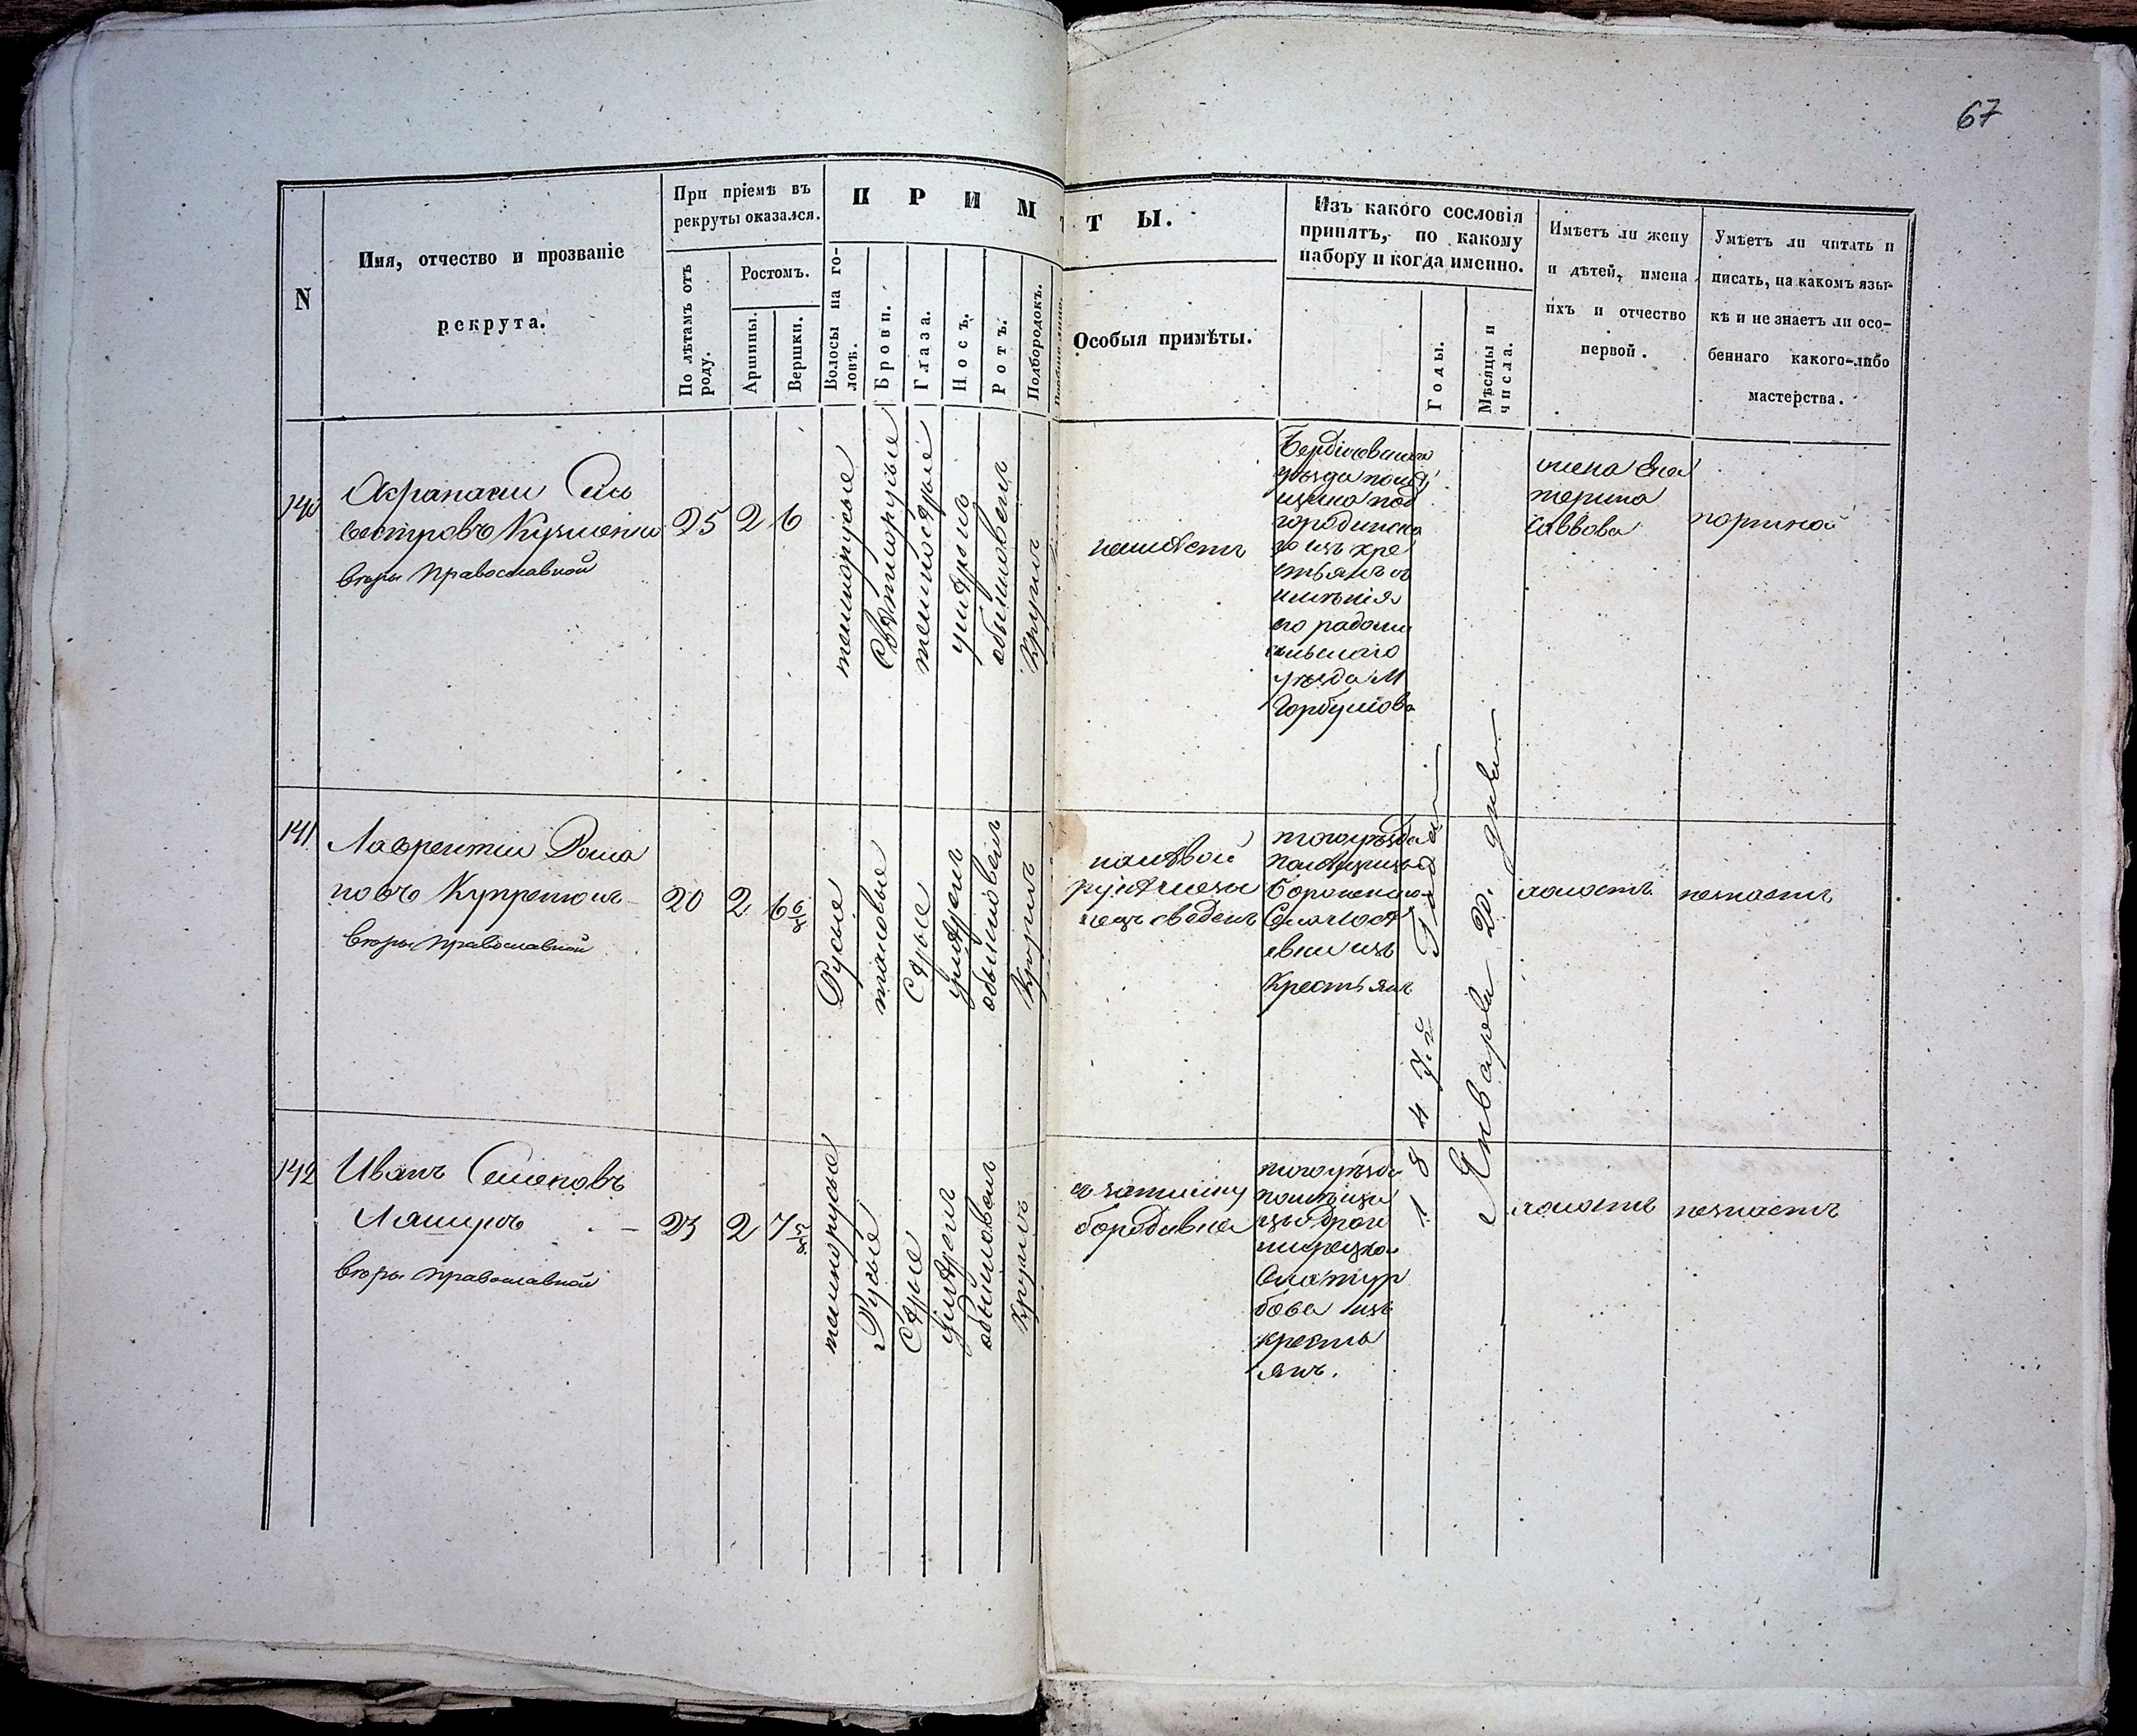 67
N
Имя, отчество и прозваніе
рекрута.
При пріемѣ въ
рекруты оказался.
По лѣтамъ отъ
роду.
Ростомъ.
Аршины.
Вершки.
П Р И М
Т Ы.
Волосы на го-
ловѣ.
Брови.
Глаза.
Носъ.
Ротъ.
Подбородокъ.
Особыя примѣты.
Изъ какого сословія
принятъ, по какому
набору и когда именно.
Годы.
Мѣсяцы и
числа.
Имѣетъ ли жену
и дѣтей, имена
ихъ и отчество
первой.
Умѣетъ ли читать и
писать, на какомъ язы-
кѣ и не знаетъ ли осо-
беннаго какого-либо
мастерства.
140
Афанасій Силь
вестровъ Кузменко
вѣры православной
25
2
6
темнорусые
Свѣтлорусые
темносѣрые
умѣренъ
обыкновенъ
Круглъ
неимѣетъ
Бердичевскаго
уѣзда помѣ
щика под
городинска
го изъ кре
стьянъ
имѣнія
его радоми
сльскаго
уѣзда М
Горбулова
жена Ека
терина
Саввова
портной
141
Лаврентій Рома
новъ Купреюкъ
вѣры православной
20
2
6 6/8
Русые
таковые
Сѣрые
умѣренъ
обыкновенъ
Круглъ
налѣвой
рукѣ
сведенъ
тогоуѣзда
Помѣщицы
изъ
Крестьянъ
184
Года
Января 20. дня
холостъ
незнаетъ
142
Иванъ Семеновъ
вѣры православной
23
2
темнорусые
Русые
Сѣрые
умѣренъ
обыкновенъ
Круглъ
бородавка
тогоуѣзда
помѣщи
изъ
кресть
янъ.
холостъ
незнаетъ